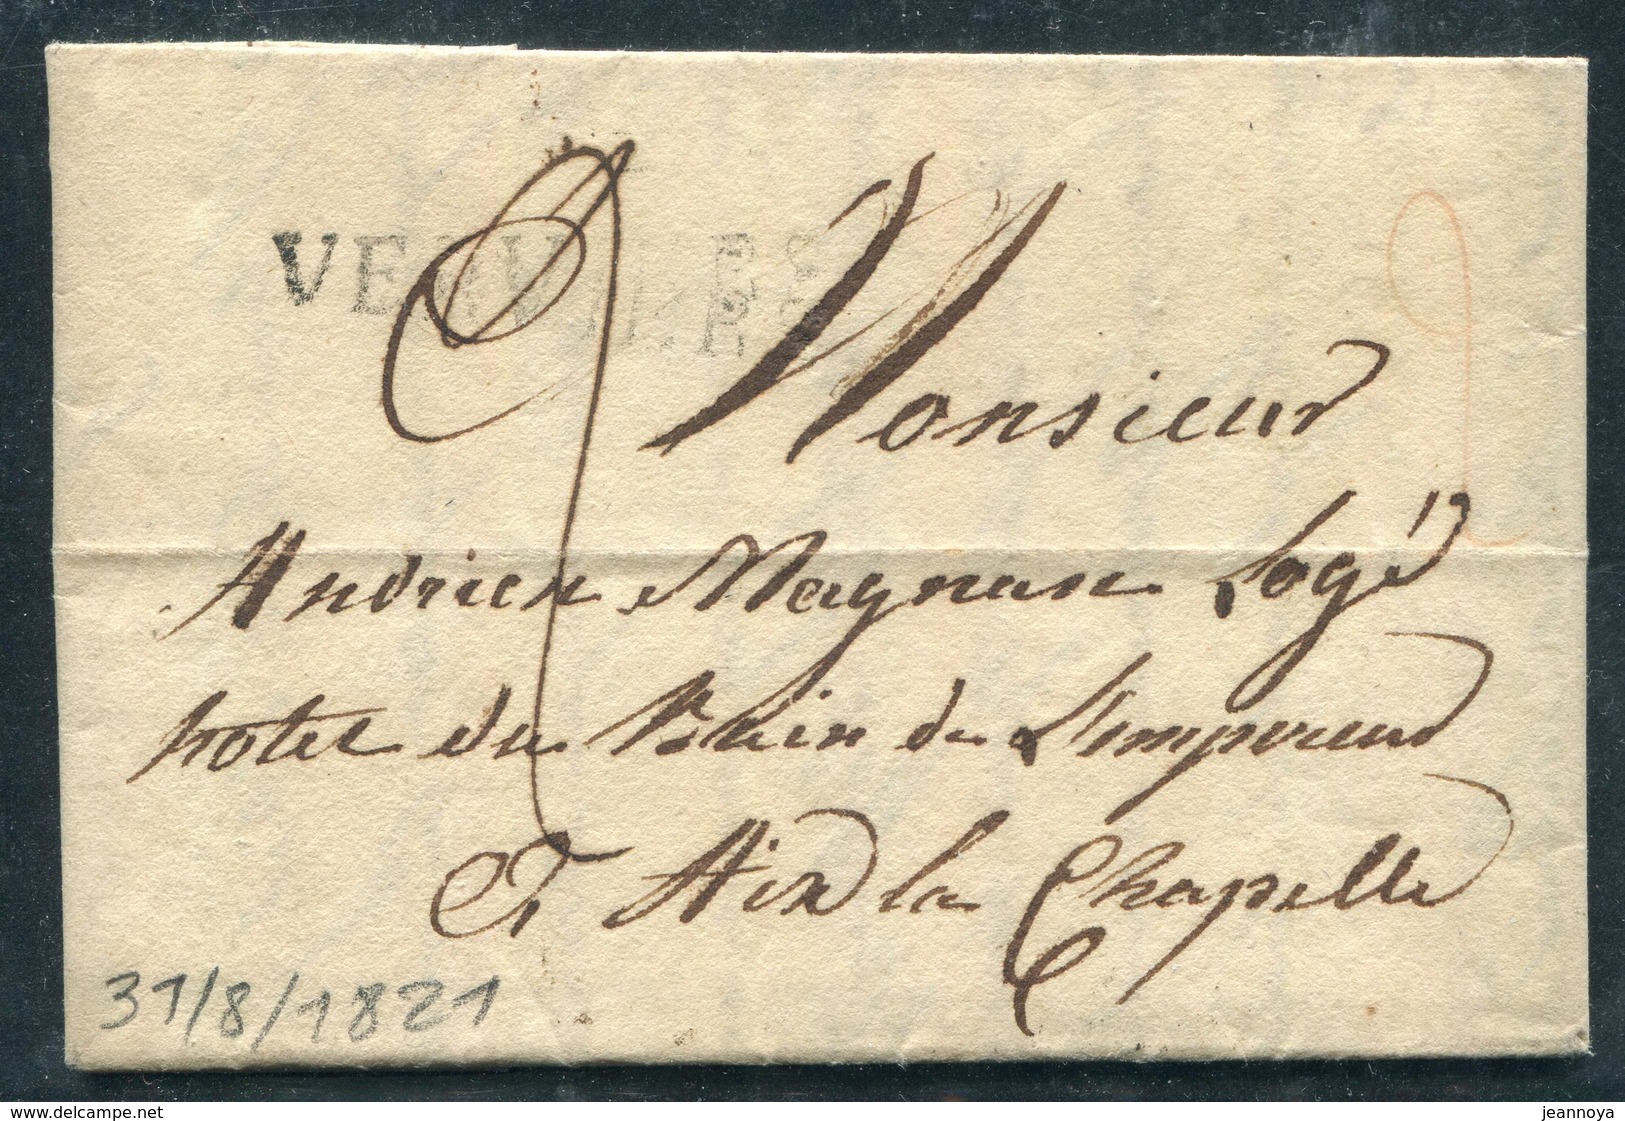 VERVIERS
Monsieur
Andrien Magnan Logé
hotel du Bain de L'empereur
a Aix la Chapelle
31/8/1821
delcampe.net
jeannoya